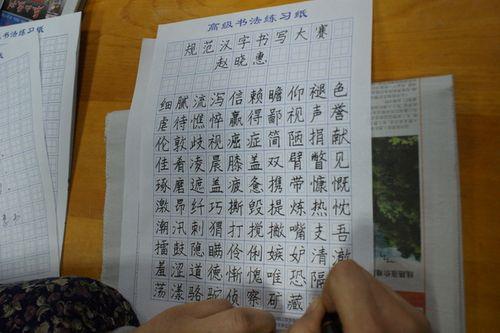 高级书法练习纸
规范汉字书写大赛
赵晓惠
细腻流泻信赖瞻仰褪色
虐待憔悴赢得鄙视声誉
伦敦歧视癌症简陋捐献
佳肴凌晨膝盖双臂瞥见
琢磨遮盖疲惫携带慷慨
激昂纤巧撕毁提炼热忱
潮汛刺猬打搅撇嘴支吾
擂鼓隐瞒伶俐嫉妒清澈
羞涩道德惭愧唯恐隔
荡漾骆驼侦察矿藏
书法练习纸